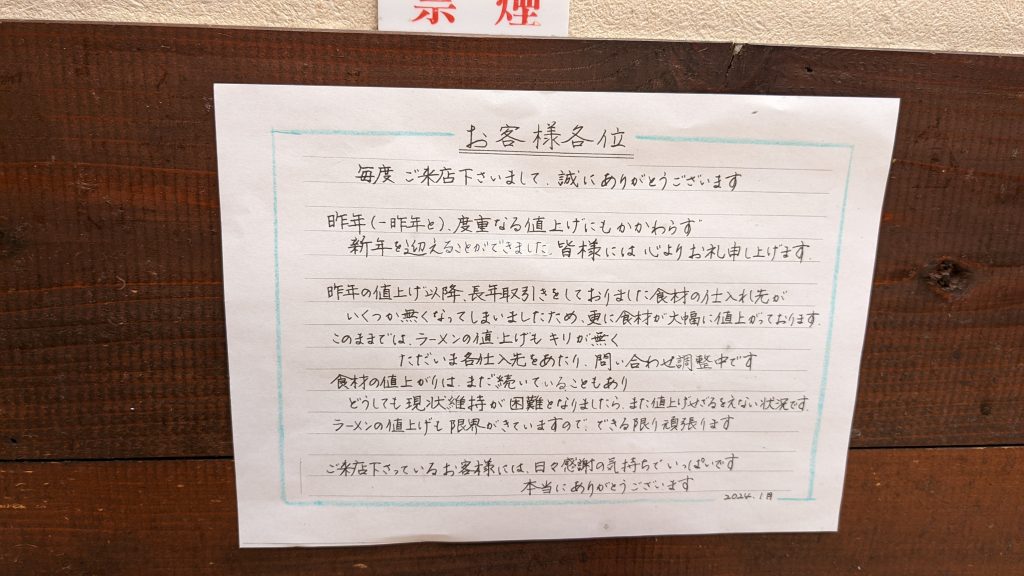 禁煙
お客様各位
毎度 ご来店下さいまして、誠にありがとうございます
昨年(一昨年と)、度重なる値上げにもかかわらず
新年を迎えることができました。皆様には心よりお礼申し上げます。
昨年の値上げ以降、長年取引きをしておりました食材の仕入れ先が
いくつか無くなってしまいましたため、更に食材が大幅に値上がっております。
このままでは、ラーメンの値上げもキリが無く
ただいま各仕入先をあたり、問い合わせ調整中です
食材の値上がりは、まだ続いていることもあり
どうしても現状維持が困難となりましたら、また値上げせざるをえない状況です。
ラーメンの値上げも限界がきていますので、できる限り頑張ります
ご来店下さっているお客様には、日々感謝の気持ちでいっぱいです
本当にありがとうございます
2024.1月